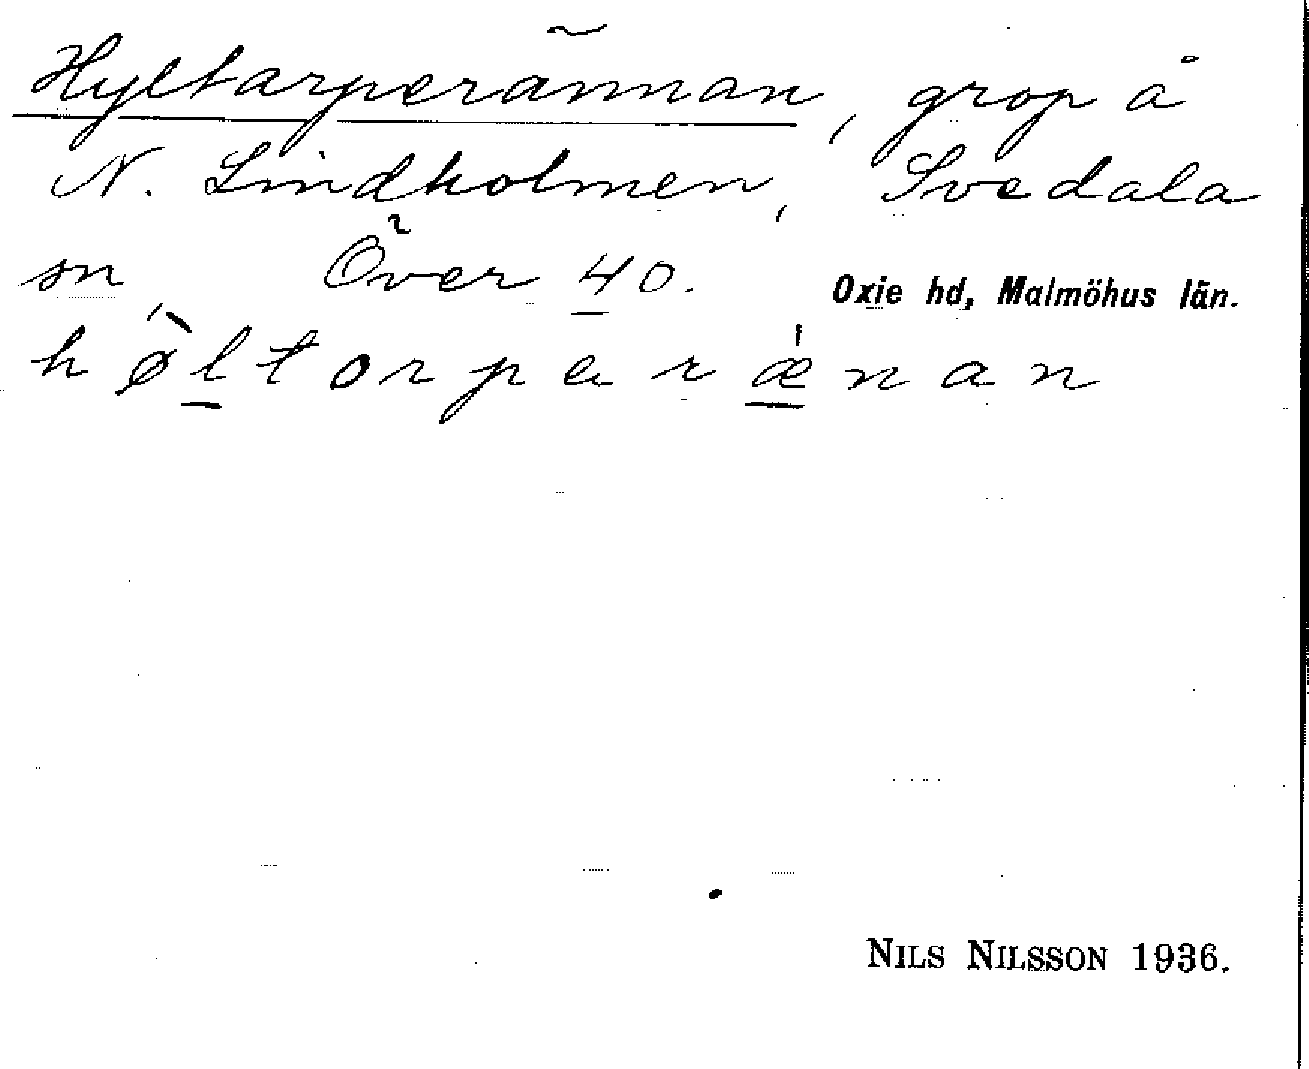 Hyltarperännan, grop å
N. Lindholmen, Svedala
sn, Över 40. Oxie hd, Malmöhus län.
hø̀ltorparǽnan
NILS NILSSON 1936.